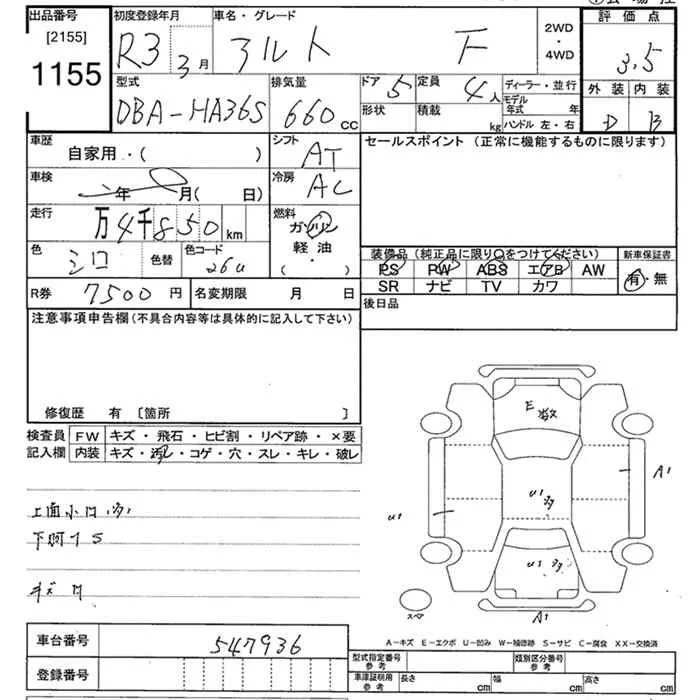 出品番号 初度登録年月 車名・グレード 2WD・4WD 評価点
[2155]
1155 R3 3月 アルト F 3.5
型式 排気量 ドア 5 定員 4人 ディーラー・並行 外装 内装
DBA-HA36S 660cc 形状 積載 kg モデル年式 年 D B
ハンドル 左・右
車歴 自家用・( ) シフト AT セールスポイント (正常に機能するものに限ります)
車検 年 月( 日) 冷房 AC
走行 万4千850km 燃料 ガソリン
軽油
( ・ )
色 シロ 色替 色コード 26U
装備品 (純正品に限り○をつけてください) 新車保証書
PS PW ABS エアB AW 有・無
SR ナビ TV カワ
R券 7500円 名変期限 月 日 後日品
注意事項申告欄 (不具合内容等は具体的に記入して下さい)
修復歴 有 [箇所 ]
検査員 FW キズ・飛石・ヒビ割・リペア跡・×要
記入欄 内装 キズ・汚レ・コゲ・穴・スレ・キレ・破レ
E
A1
U1
U1
U1
A1
スペア
上面小
下回りS
キズ
A-キズ E-エクボ U-凹み W-補修跡 S-サビ C-腐食 XX-交換済
車台番号 547936
型式指定番号 参考 類別区分番号 参考
登録番号
車庫証明用 参考 長さ cm 幅 cm 高さ cm